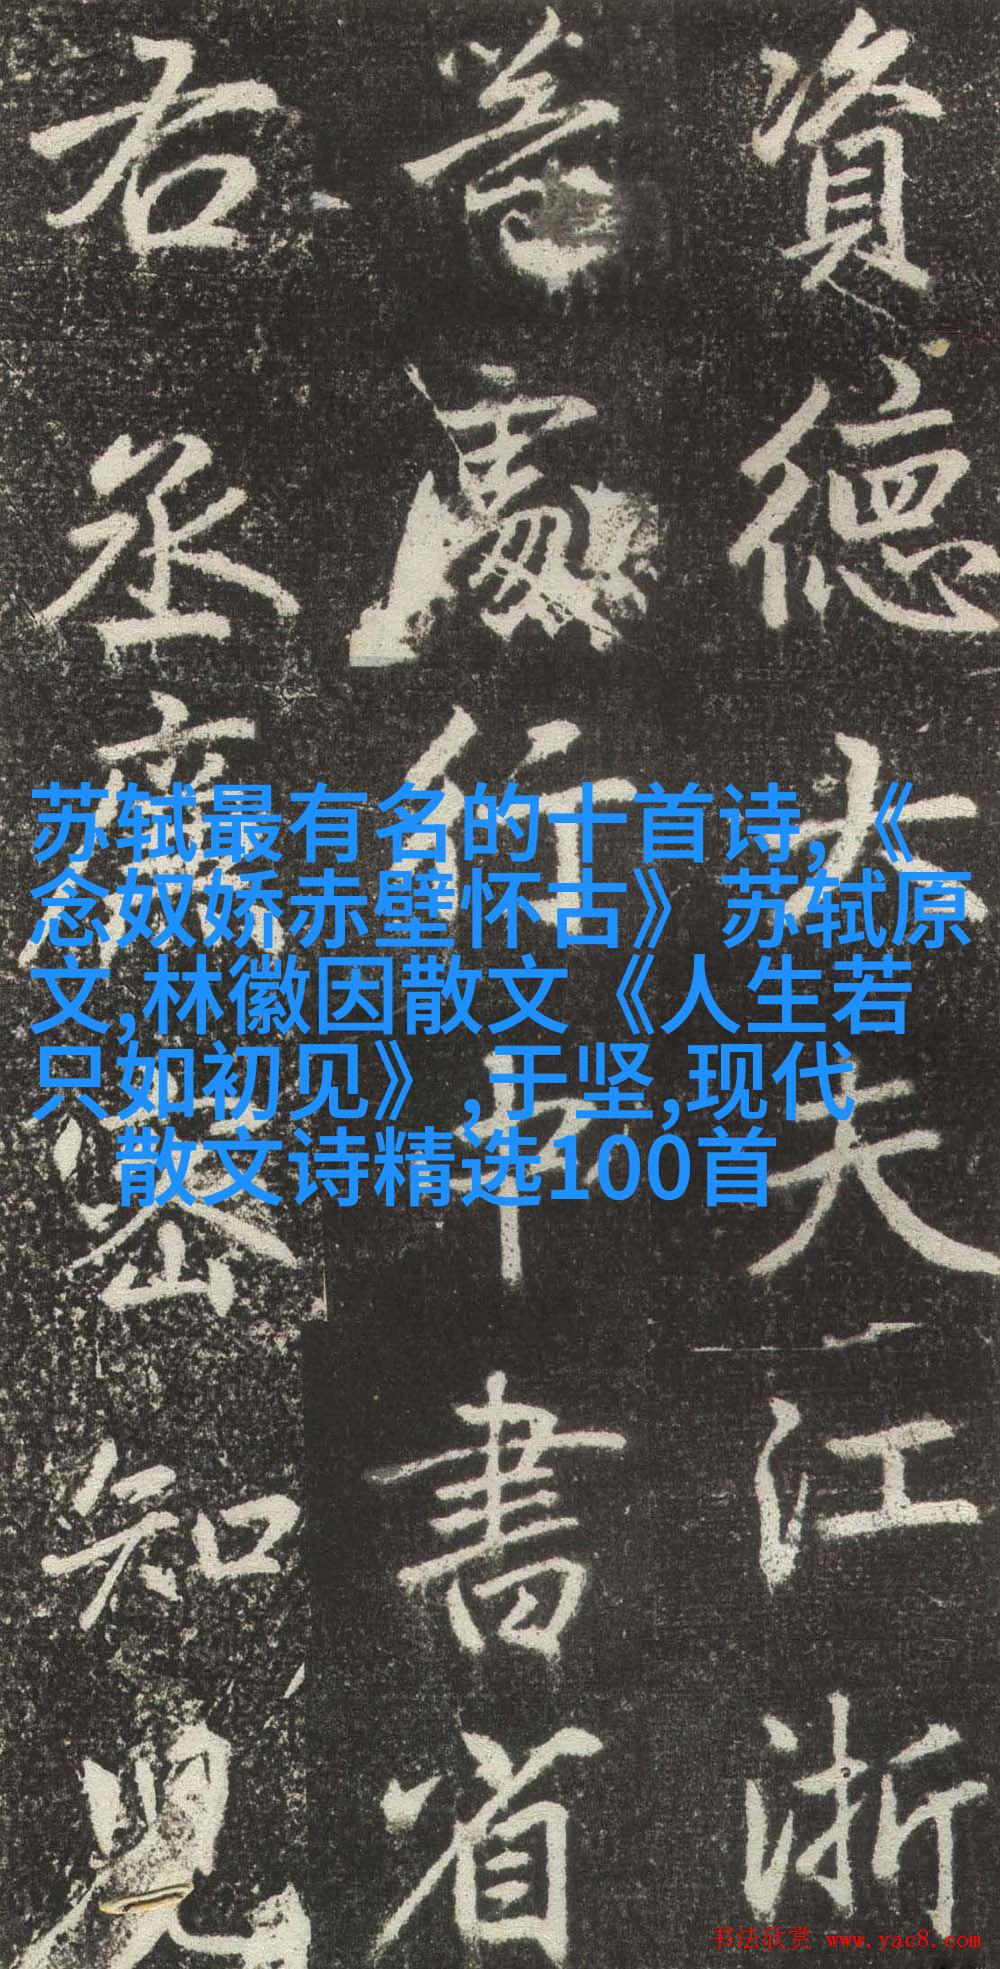 資德大夫江浙
等處行中書省
右丞廉密知兒
苏轼最有名的十首诗,《
念奴娇赤壁怀古》苏轼原
文,林徽因散文《人生若
只如初见》,于坚,现代
散文诗精选100首
书法欣赏 www.yac8.com